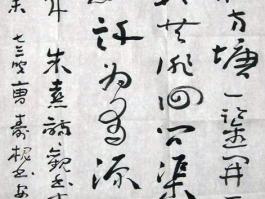 方塘一鉴开
共徘徊问渠
许为有源
朱熹诗观书
七三叟曹寿